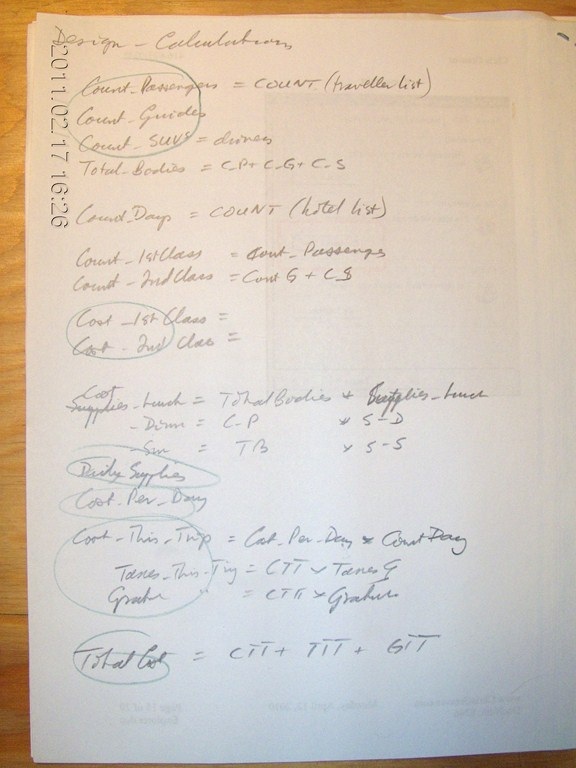 Design - Calculations
2011.02.17 16:26
Count_Passengers = COUNT (traveller list)
Count_Guides
Count_SUVs = drivers
Total_Bodies = C_P + C_G + C_S
Count_Days = COUNT (hotel list)
Count_1stClass = Count_Passenges
Count_2ndClass = Cont G + C_S
Cost_1stClass =
Cost_2nd Class =
Cost
Supplies_Lunch = TotalBodies * Supplies_Lunch
- Dinn = C-P * S-D
= TB * S-S
Daily Supplies
Cost_Per_Day
Cost_This_Trip = Cost_Per_Day * Count Day
Taxes_This_Trip = CTT * Taxes
= CTT *
Total Cost = CTT + TTT + GTT